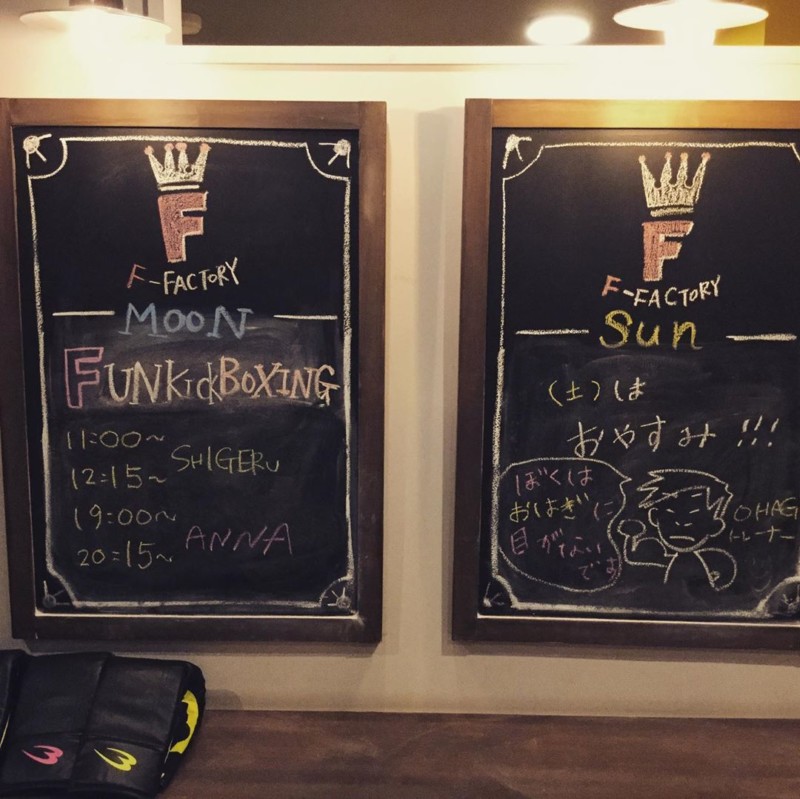 F
F-FACTORY
MOON
FUNKickBOXING
11:00~
12:15~
SHIGERU
19:00~
20:15~
ANNA
F
F-FACTORY
Sun
(土)は
おやすみ!!!
ぼくは
おはぎに
目がない
です
OHAG
トレーナー